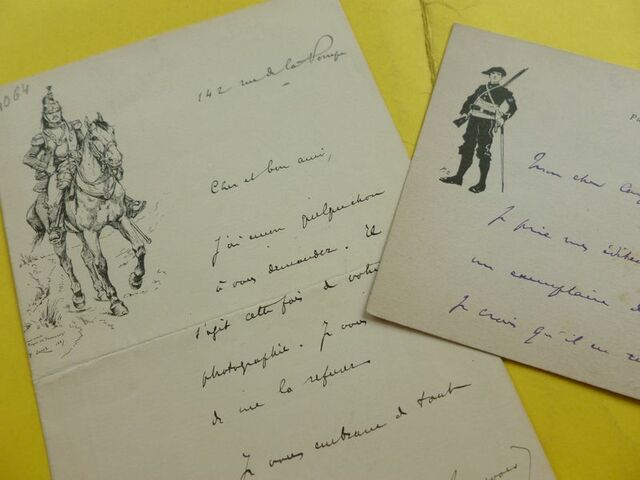 142 rue de la Pompe
Cher et bon ami,
J'ai encore quelque chose
à vous demander. Il
s'agit cette fois de votre
photographie. Je vous
de me la refuser
Je vous embrasse de tout
Mon cher
Je prie mes
un exemplaire
Je crois qu'il en